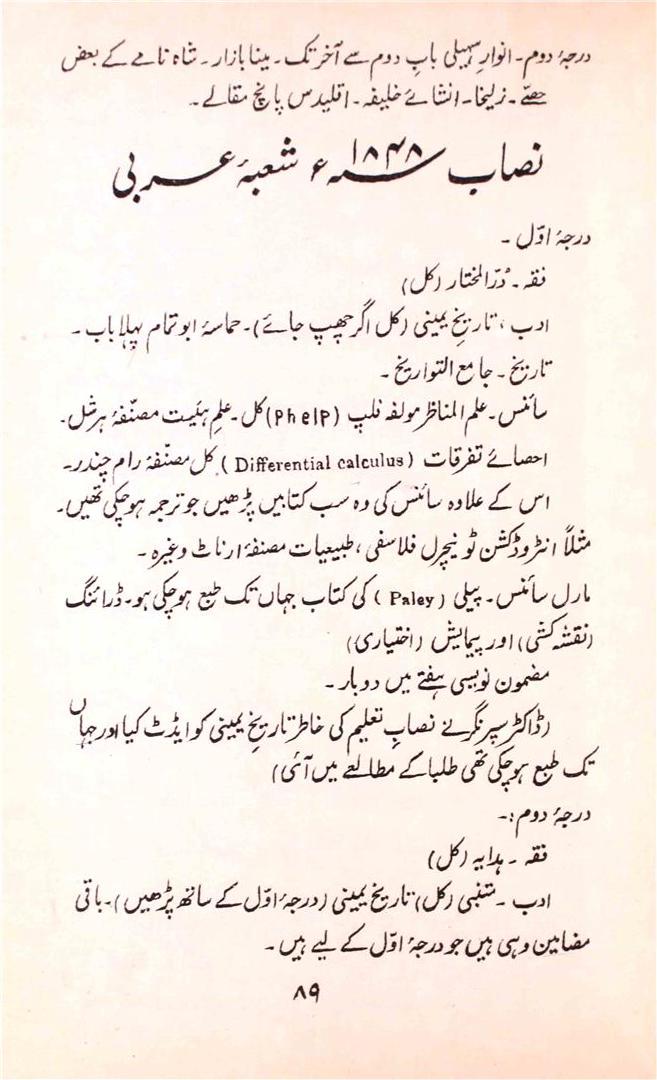 درجۂ دوم۔ انوارِ سہیلی بابِ دوم سے آخر تک۔ مینا بازار۔ شاہ نامے کے بعض
حصّے۔ زلیخا۔ انشائے خلیفہ۔ اقلیدس پانچ مقالے۔
نصاب ۱۸۴۸ء شعبۂ عربی
درجۂ اوّل۔
فقہ۔ دُرّالمختار (کل)
ادب، تاریخِ یمینی (کل اگر چھپ جائے)۔ حماسۂ ابو تمام پہلا باب۔
تاریخ۔ جامع التواریخ۔
سائنس۔ علم المناظر مولفہ فلپ (Phelp) کل۔ علمِ ہیئت مصنّفۂ ہرشل۔
احصائے تفرقات (Differential calculus) کل مصنّفۂ رام چندر۔
اس کے علاوہ سائنس کی وہ سب کتابیں پڑھیں جو ترجمہ ہو چکی تھیں۔
مثلاً انٹروڈکشن ٹو نیچرل فلاسفی، طبیعیات مصنفۂ ارناٹ وغیرہ۔
مارل سائنس۔ پیلی (Paley) کی کتاب جہاں تک طبع ہو چکی ہو۔ ڈرائنگ
(نقشہ کشی) اور پیمایش (اختیاری)
مضمون نویسی ہفتے میں دو بار۔
(ڈاکٹر سپرنگر نے نصابِ تعلیم کی خاطر تاریخِ یمینی کو ایڈٹ کیا اور جہاں
تک طبع ہو چکی تھی طلبا کے مطالعے میں آئی)
درجۂ دوم:۔
فقہ۔ ہدایہ (کل)
ادب۔ متنبی (کل) تاریخ یمینی (درجۂ اوّل کے ساتھ پڑھیں)۔ باقی
مضامین وہی ہیں جو درجۂ اوّل کے لیے ہیں۔
۸۹